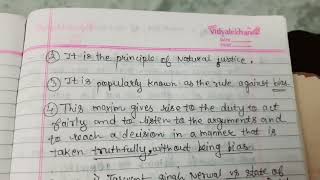 Vidyalekhan
② It is the principle of Natural justice.
③ It is popularly known as the rule against bias.
④ This maxim gives rise to the duty to act
fairly and to listen to the arguments and
to reach a decision in a manner that is
taken truthfully, without being bias.
singh vs state of